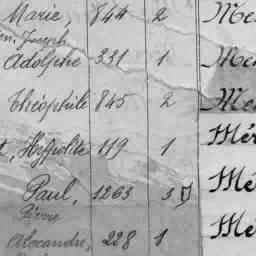 Marie, 844 2 Me
Joseph
Adolphe 331 1 Me
Théophile 845 2 Me
t, Hyppolite 119 1 Mér
Paul, 1263 3 Mé
Pierre
Alexandre, 228 1 Mé